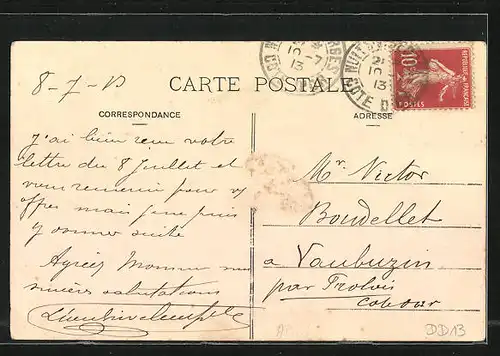 8-7-13
CARTE POSTALE
CORRESPONDANCE
ADRESSE
J'ai bien reçu votre
lettre du 8 Juillet et
vous remercie pour vos
offres mais je ne puis
y donner suite
Agréez Monsieur mes
salutations
Mr Victor
Bourdellet
a Vaubuzin
par Frolois
Cote d'or
NUITS
21
10-7
13
COTE D'OR
10
REPUBLIQUE FRANÇAISE
POSTES
DD13